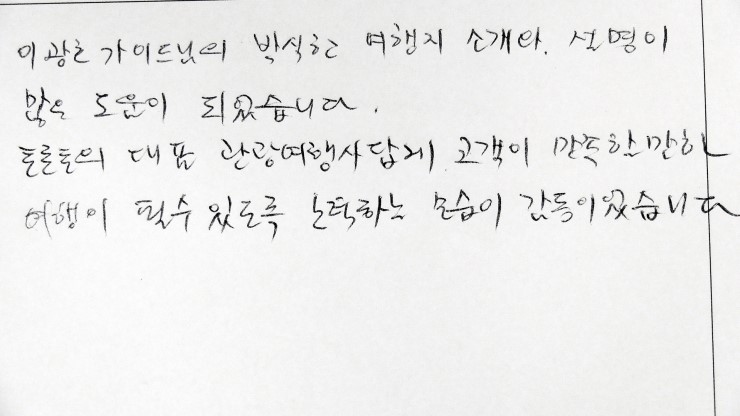 이광호 가이드님의 박식한 여행지 소개와. 설명이
많은 도움이 되었습니다.
토론토의 대표 관광여행사답게 고객이 만족할만한
여행이 될수 있도록 노력하는 모습이 감동이었습니다